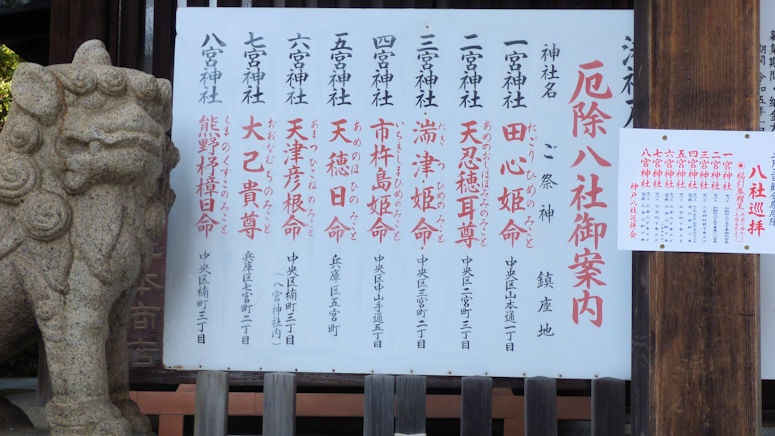 厄除八社御案内
神社名 ご祭神 鎮座地
一宮神社 田心姫命 たこりひめのみこと 中央区山本通一丁目
二宮神社 天忍穂耳尊 あめのおしほみみのみこと 中央区二宮町三丁目
三宮神社 湍津姫命 たきつひめのみこと 中央区三宮町二丁目
四宮神社 市杵島姫命 いちきしまひめのみこと 中央区中山手通五丁目
五宮神社 天穂日命 あめのほひのみこと 兵庫区五宮町
六宮神社 天津彦根命 あまつひこねのみこと 中央区楠町三丁目
（八宮神社内）
七宮神社 大己貴尊 おおなむちのみこと 兵庫区七宮町二丁目
八宮神社 熊野杼樟日命 くまのくすひのみこと 中央区楠町三丁目
八社巡拝
一宮神社
二宮神社
三宮神社
四宮神社
五宮神社
六宮神社
七宮神社
八宮神社
神戸八社巡拝会